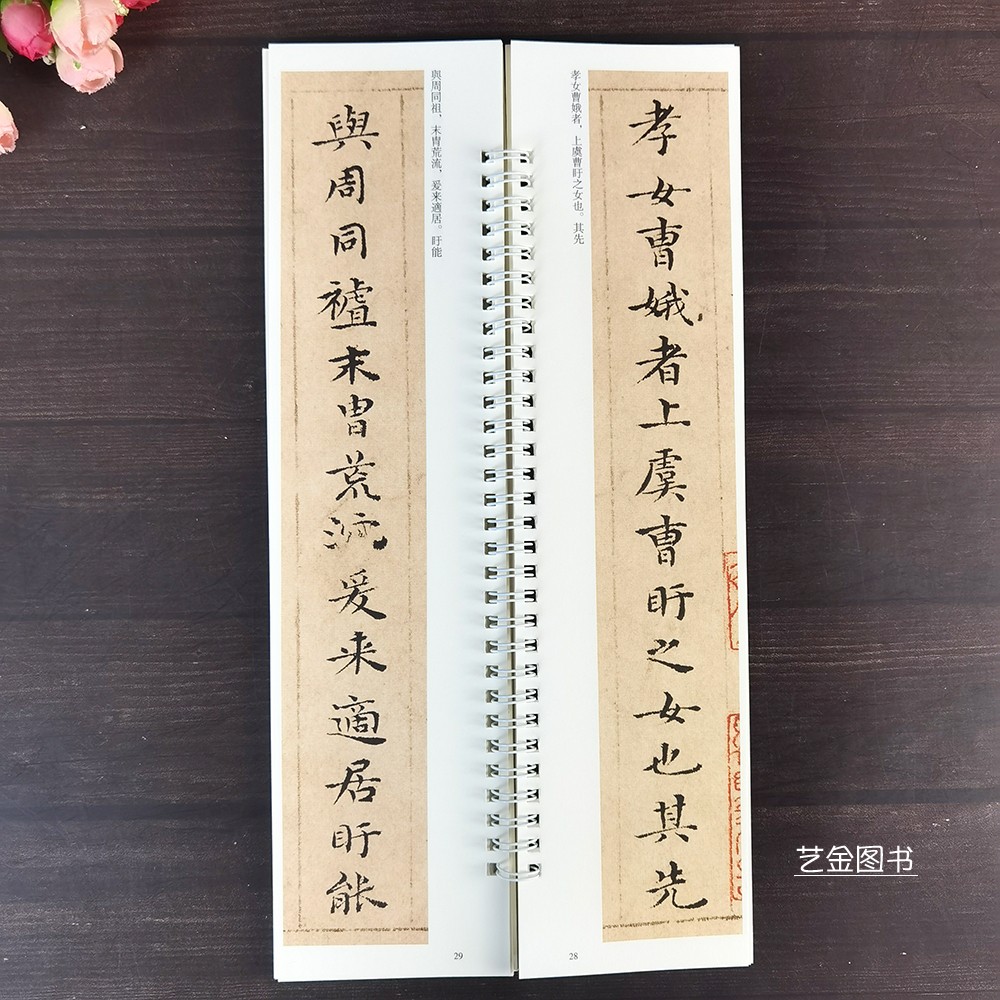 孝女曹娥者上虞曹盱之女也其先
孝女曹娥者，上虞曹盱之女也。其先
28
與周同祖末冑荒流爰来適居盱能
與周同祖，末胄荒流，爰来適居。盱能
29
艺金图书